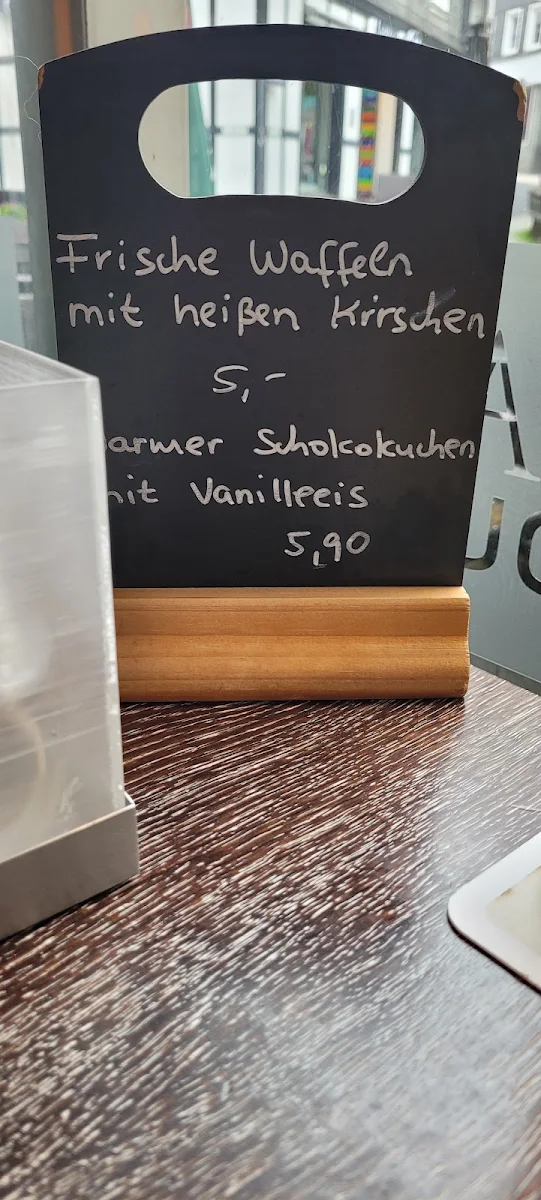 Frische Waffeln
mit heißen Kirschen
5,-
armer Schokokuchen
it Vanilleeis
5,90